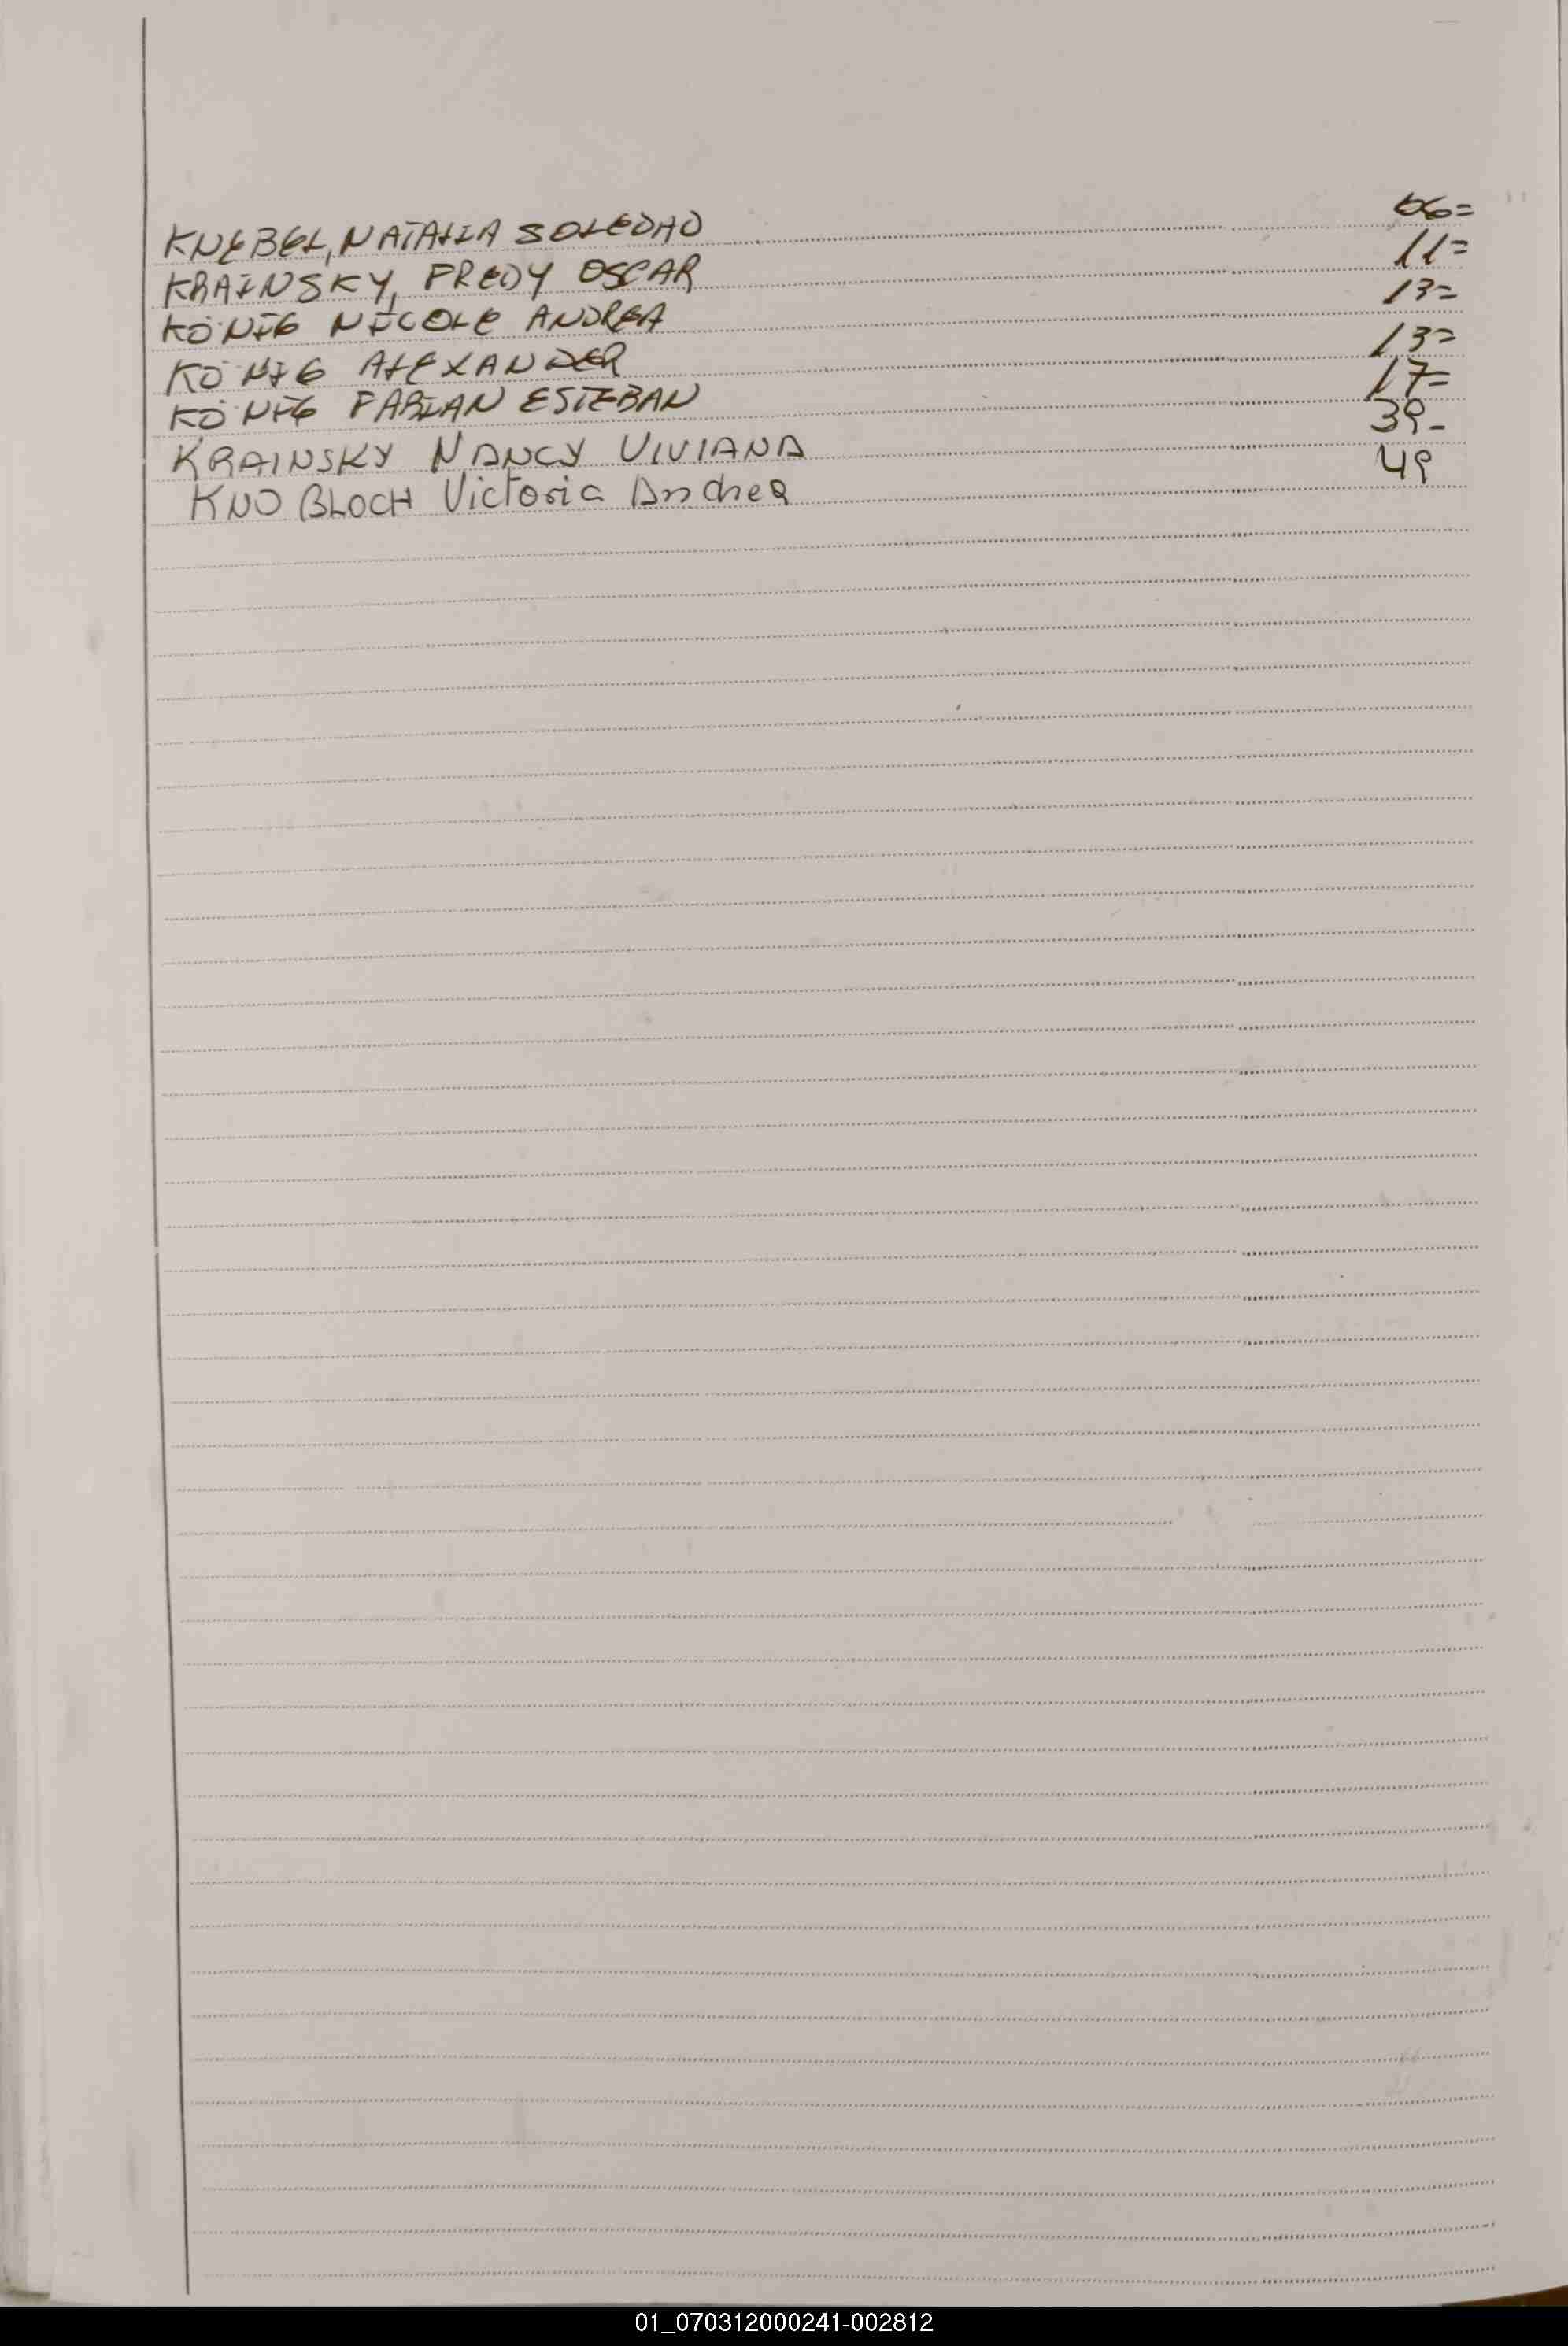 KNEBEL, NATALIA SOLEDAD 06=
KRAINSKY, FREDY OSCAR 11=
KÖNIG NICOLE ANDREA 13=
KÖNIG ALEXANDER 13=
KÖNIG FABIAN ESTEBAN 17=
KRAINSKY NANCY VIVIANA 39-
KNOBLOCH Victoria Andrea 49
01_070312000241-002812